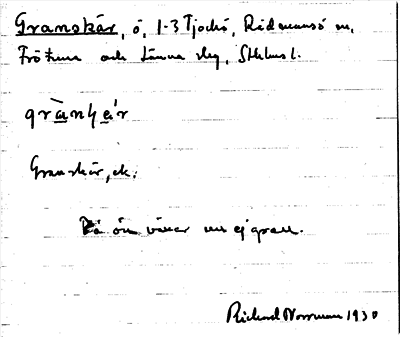 Granskär, ö, 1-3 Tjockö, Rådmansö sn,
Frötuna och Länna slg, Sthlms l.
grànʃ̣ér
Granskär, ek.
På ön växer nu ej gran.
Richard Norrman 1930